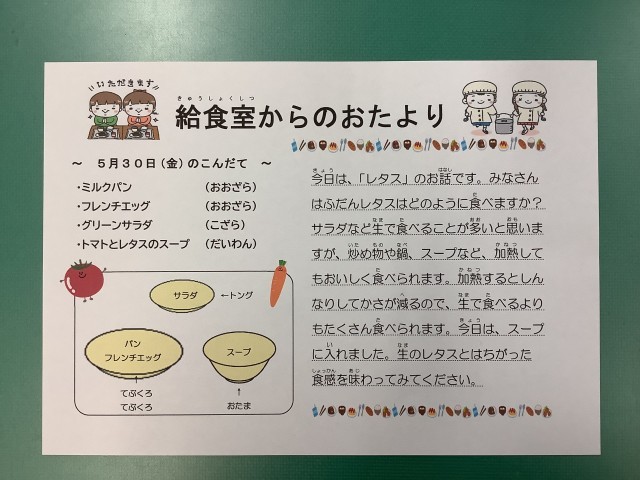 いただきます
きゅうしょくしつ
給食室からのおたより
～ 5月30日(金)のこんだて ～
・ミルクパン (おおざら)
・フレンチエッグ (おおざら)
・グリーンサラダ (こざら)
・トマトとレタスのスープ (だいわん)
サラダ ←トング
パン
フレンチエッグ
スープ
↑
てぶくろ
てぶくろ
↑
おたま
今日は、「レタス」のお話です。みなさん
はふだんレタスはどのように食べますか？
サラダなど生で食べることが多いと思いま
すが、炒め物や鍋、スープなど、加熱して
もおいしく食べられます。加熱するとしん
なりしてかさが減るので、生で食べるより
もたくさん食べられます。今日は、スープ
に入れました。生のレタスとはちがった
食感を味わってみてください。